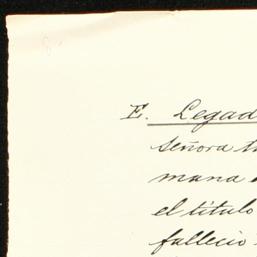 E. Legad
señora t
mana
el título
falleció